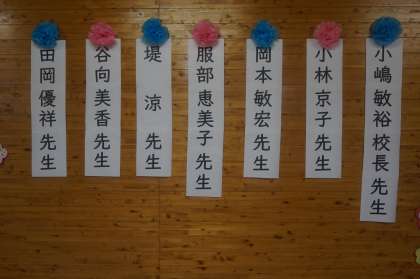 小嶋敏裕 校長 先生
小林 京子 先生
岡本 敏宏 先生
服部 恵美子 先生
堤 涼 先生
谷向 美香 先生
田岡 優祥 先生